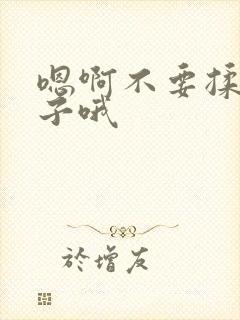 嗯啊不要揉
子哦
於增友